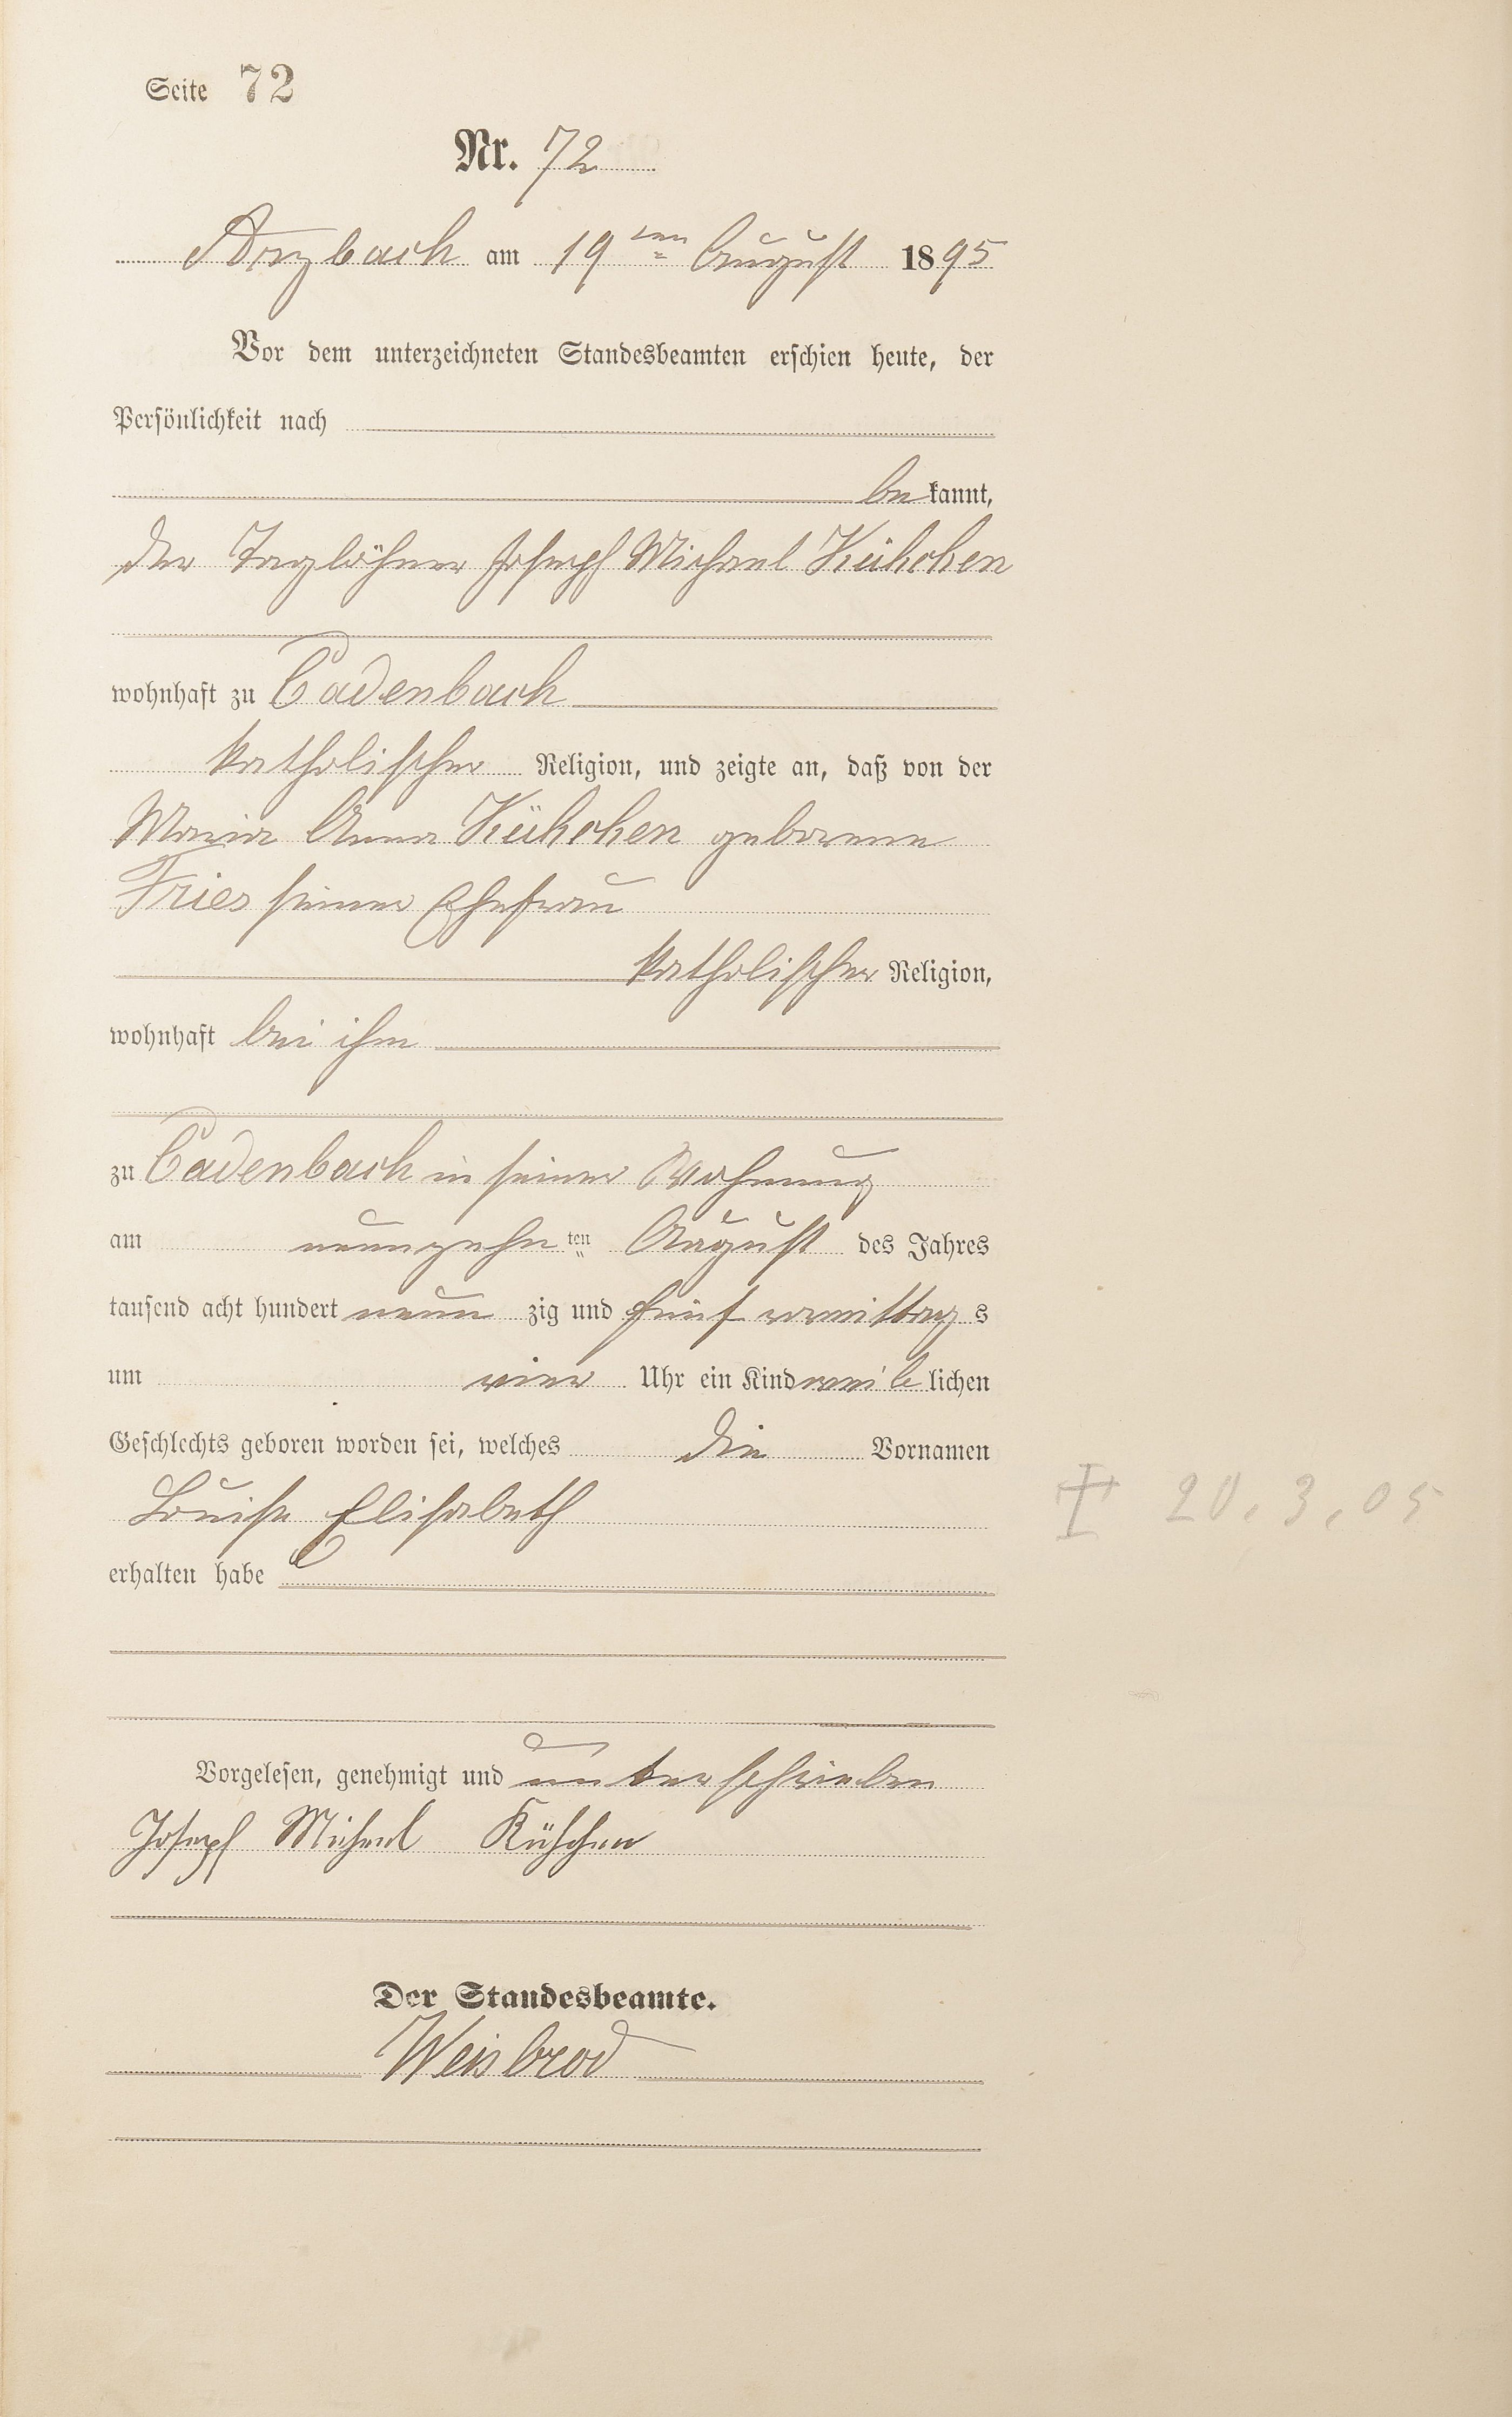 Seite 72
Nr. 72
Arzbach am 19ten August 1895
Vor dem unterzeichneten Standesbeamten erschien heute, der
Persönlichkeit nach
bekannt,
der Taglöhner Joseph Michael Kühchen
wohnhaft zu Cadenbach
katholischer Religion, und zeigte an, daß von der
Maria Anna Kühchen geborene
Fries seiner Ehefrau
katholischer Religion,
wohnhaft bei ihm
zu Cadenbach in seiner Wohnung
am neunzehnten August des Jahres
tausend acht hundert neunzig und fünf vormittags
um vier Uhr ein Kind weiblichen
Geschlechts geboren worden sei, welches die Vornamen
Louise Elisabeth
† 20.3.05
erhalten habe
Vorgelesen, genehmigt und unterschrieben
Joseph Michael Kühchen
Der Standesbeamte.
Weisbrod